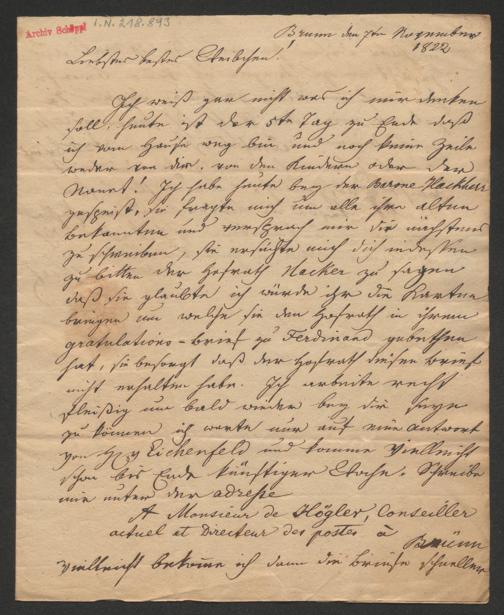 I.N. 218.893
Archiv Schöppl
Brünn den 7ten November
1822
Liebstes bestes Weibchen!
Ich weiß gar nicht was ich mir denken
soll, heute ist der 5te Tag zu Ende daß
ich vom Hause weg bin und noch keine Zeile
weder von dir, von den Kindern oder der
! Ich habe heute bey der Barone Hackher
gespeist, sie fragte mich um alle ihre alten
bekannten und versprach mir dir nächstens
zu schreiben, sie ersuchte auch dich indessen
zu bitten der Hofrath Hacker zu sagen
daß sie glaubte ich würde ihr die Karten
bringen um welche sie den Hofrath in ihrem
gratulations-Brief zu Ferdinand gebethen
hat, sie besorgt daß der Hofrath diesen Brief
nicht erhalten habe. Ich arbeite recht
fleißig um bald wieder bey dir seyn
zu können ich warte nur auf eine antwort
von H: v Eichenfeld und komme vielleicht
schon bis Ende künftiger Woche. Schreibe
mir unter der adreße
A Monsieur de Högler, Conseiller
actuel et Directeur des postes à
Brünn
vielleicht bekome ich dann die Briefe schneller